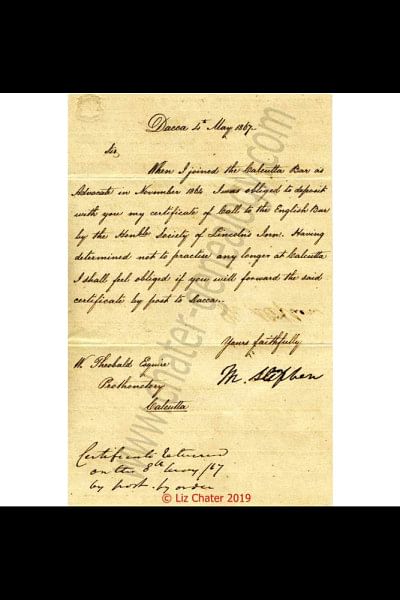 Dacca 4th May 1867.
Sir,
When I joined the Calcutta Bar as
Advocate in November 1864 I was obliged to deposit
with you my certificate of Call to the English Bar
by the Honble Society of Lincoln's Inn. Having
determined not to practise any longer at Calcutta
I shall feel obliged if you will forward the said
certificate by post to Dacca.
Yours faithfully
M. Stephen
W. Theobald Esquire
Prothonotary
Calcutta
Certificate Returned
on the 8th /67
by post by order
www.chater-genealogy.com
© Liz Chater 2019